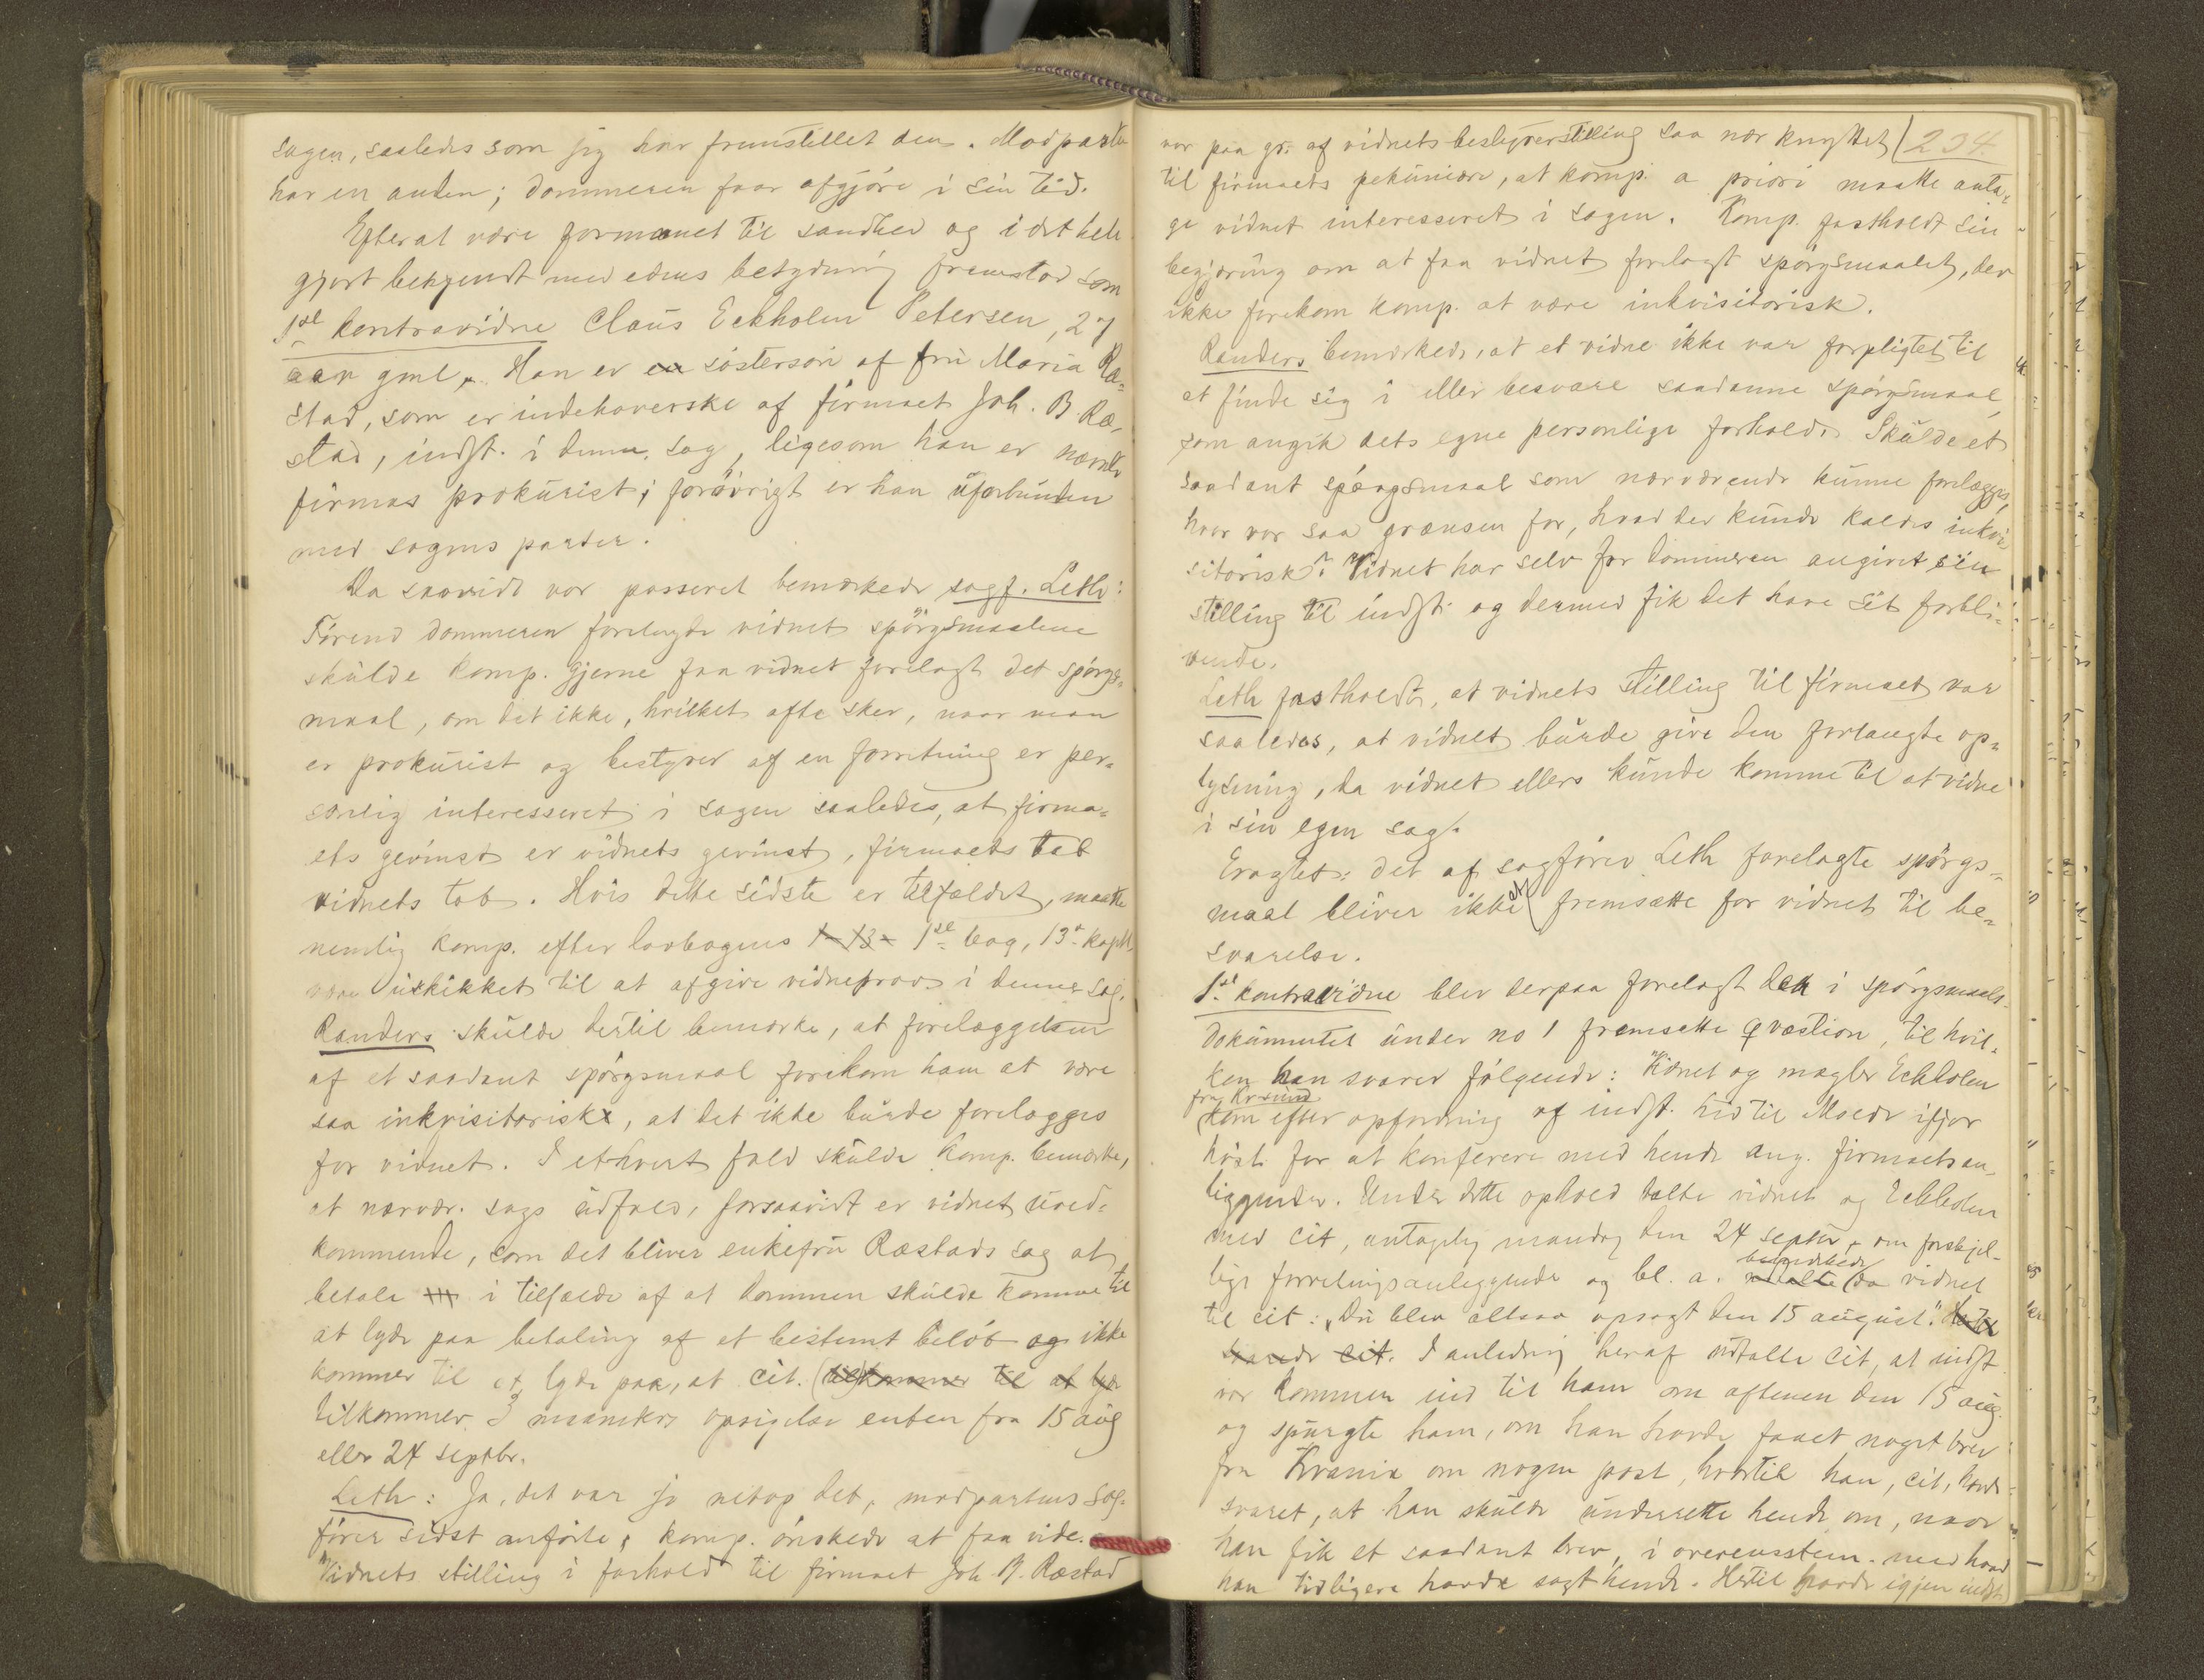 sagen, saaledes som jeg har fremstillet den. Modparten
har en anden; dommeren faar afgjöre i sin tid.
Efterat være formanet til sandhed og i det hele
gjort bekjendt med edens betydning fremstod som
1ste kontravidne Claus Eckholm Petersen, 27
aar gml. Han er en söstersön af fru Maria Ræ-
stad, som er indehaverske af firmaet Joh. B. Ræ-
stad, indst. i denne sag, ligesom han er nævnte
firmas prokurist; forövrigt er han uforbunden
med sagens parter.
Da saavidt var passeret bemærkede sagf. Leth:
Förend dommeren forelagde vidnet spörgsmaalene
skulde komp. gjerne faa vidnet forelagt det spörgs-
maal, om det ikke, hvilket ofte sker, naar man
er prokurist og bestyrer af en forretning er per-
sonlig interesseret i sagen saaledes, at firma-
ets gevinst er vidnets gevinst, firmaets tab
vidnets tab. Hvis dette sidste er tilfældet, maatte
nemlig komp. efter lovbogens 1-13- 1ste bog, 13de kapt.
være uskikket til at afgive vidneprov i denne sag.
Randers skulde dertil bemærke, at forelæggelsen
af et saadant spörgsmaal forekom ham at være
saa inkvisitorisk, at det ikke burde forelægges
for vidnet. I ethvert fald skulde komp. bemærke,
at nærvær. sags udfald, forsaavidt er vidnet uved-
kommende, som det bliver enkefru Ræstads sag at
betale i tilfælde af at dommen skulde komme til
at lyde paa betaling af et bestemt belöb og ikke
kommer til at lyde paa, at cit. (tilkommer til at lyde
tilkommer 3 maaneders opsigelse enten fra 15 aug
eller 24 septbr.
Leth: Ja, det var jo netop det, modpartens sag-
förer sidst anförte, komp. önskede at faa vide.
Vidnets stilling i forhold til firmaet Joh. B. Ræstad
var paa gr. af vidnets bestyrerstilling saa nær knyttet 234.
til firmaets pekuniære, at komp. a priori maatte anta-
ge vidnet interesseret i sagen. Komp. fastholdt sin
begjæring om at faa vidnet forelagt spörgsmaalet, der
ikke forekom komp. at være inkvisitorisk.
Randers bemærkede, at et vidne ikke var forpligtet til
at finde sig i eller besvare saadanne spörgsmaal,
som angik dets egne personlige forholde. Skulde et
saadant spörgsmaal som nærværende kunne forelægges,
hvor var saa grænsen for, hvad der kunde kaldes inkvi-
sitorisk? Vidnet har selv for dommeren angivet sin
stilling til indst. og dermed fik det have sit forbli-
vende.
Leth fastholdt, at vidnets stilling til firmaet var
saaledes, at vidnet burde give den forlangte op-
lysning, da vidnet ellers kunde komme til at vidne
i sin egen sag.
Eragtet: det af sagförer Leth forelagte spörgs-
maal bliver ikke at fremsætte for vidnet til be-
svarelse.
1ste kontravidne blev derpaa forelagt den i spörgsmaals-
dokumentet under no 1 fremsatte qvæstion, til hvil-
ken han svarer fölgende: Vidnet og mægler Eckholm
fra Kr.sund
kom efter opfordring af indst. hid til Molde ifjor
höst for at konferere med hende ang. firmaets an-
liggender. Under dette ophold talte vidnet og Eckholm
med cit, antagelig mandag den 24 septbr, om forskjel-
bemærkede
lige forretningsanliggende og bl. a. udtalte da vidnet
til cit: „Du blev altsaa opsagt den 15 august". Hertil
svarede cit. I anledning heraf udtalte cit, at indst.
var kommen ind til ham om aftenen den 15 aug.
og spurgte ham, om han havde faaet noget brev
fra Krania om nogen post, hvortil han, cit, havde
svaret, at han skulde underrette hende om, naar
han fik et saadant brev, i overensstem. med hvad
han tidligere havde sagt hende. Hertil havde igjen indst.